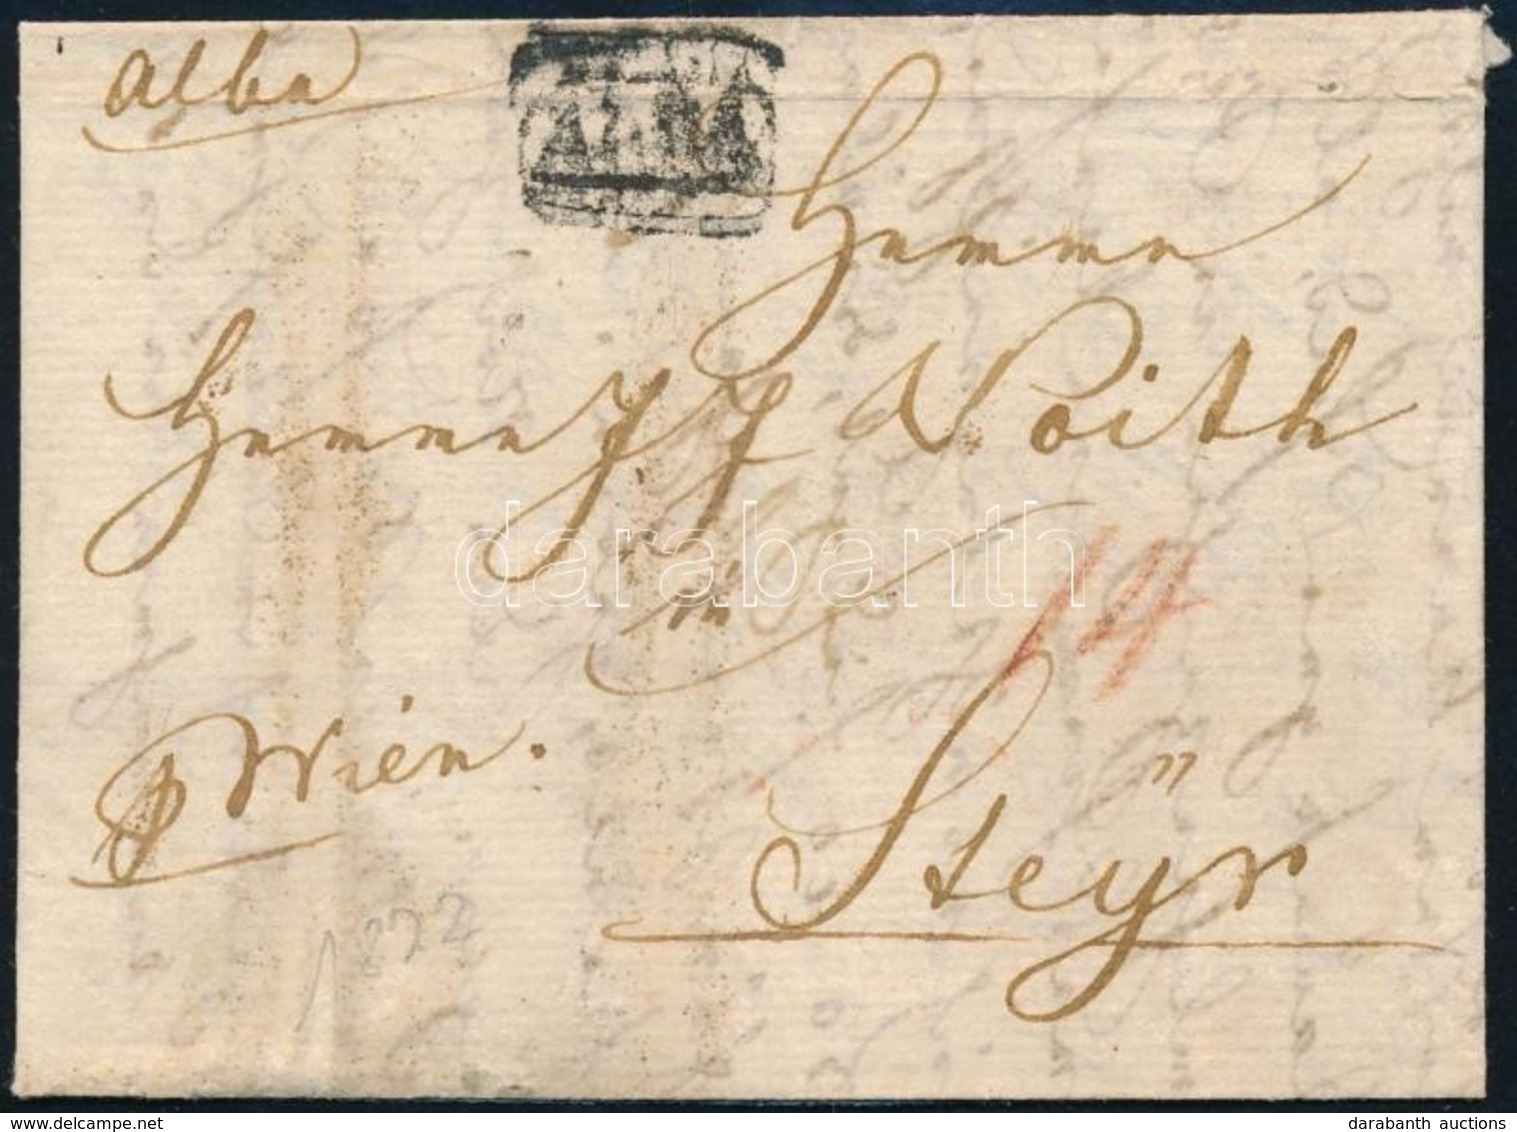 Alba
ALBA
Herrn
Herrn J J Voith
in
14
p Wien.
Steÿr
1822
darabanth
delcampe.net
darabanth auctions